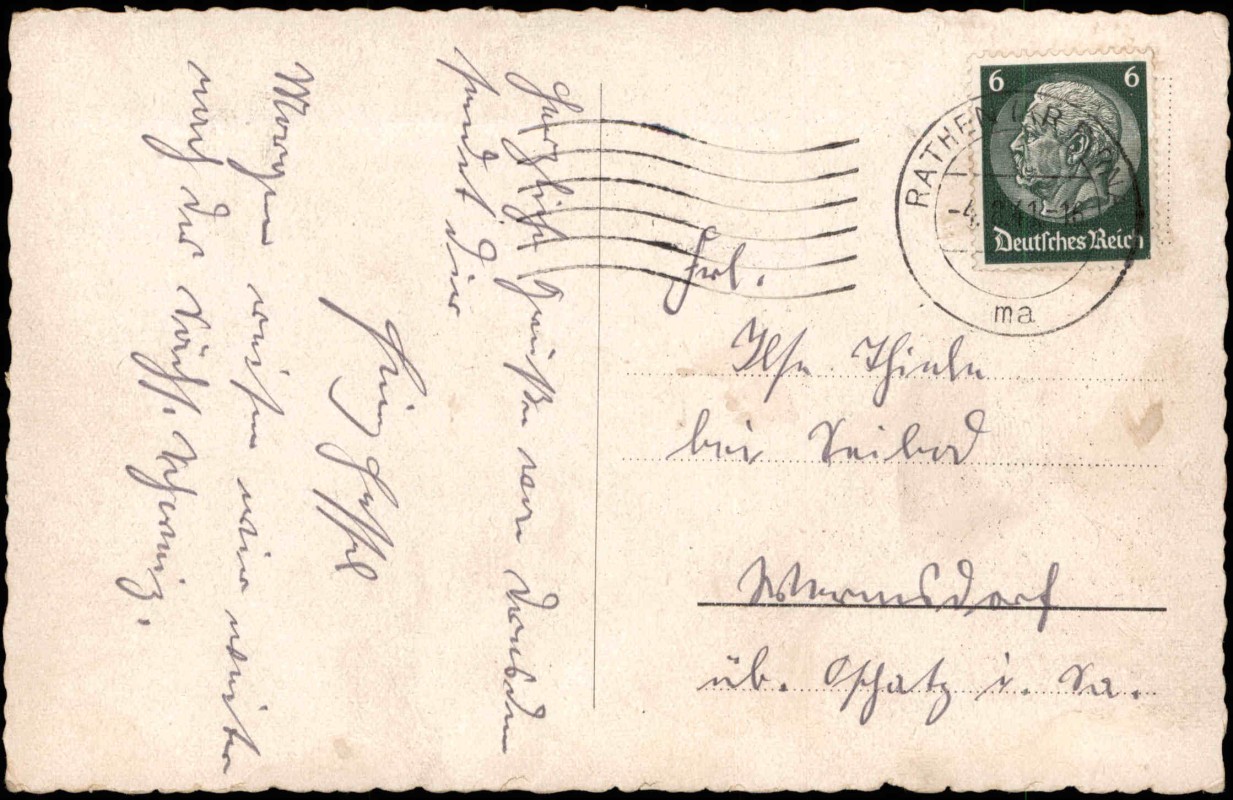 Herzliche Grüße von Dresden
sendet dir
Heinz
Morgen reisen wir weiter
nach der Sächs. Schweiz.
6 6
Deutsches Reich
RATHEN
ma
Frl.
Ilse Thiele
bei Seibod
Wermsdorf
üb. Oschatz i. Sa.